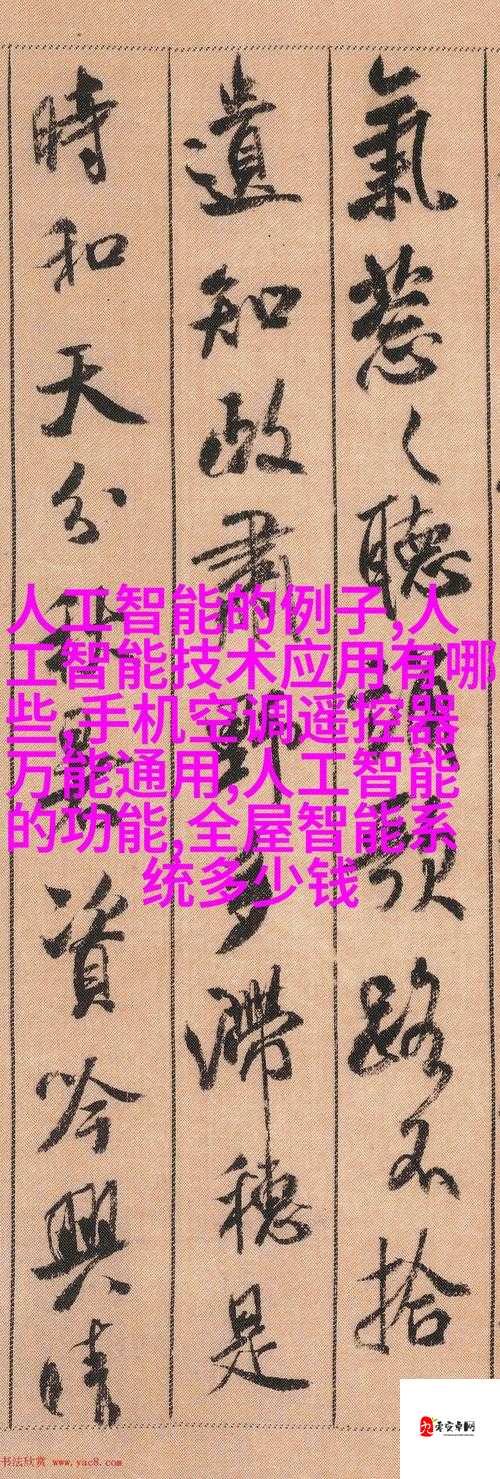 氣葱〻聽頌歌路不拾
遺知政肅野多滯穗是
時和天分秋暑資吟興晴
人工智能的例子,人
工智能技术应用有哪
些,手机空调遥控器
万能通用,人工智能
的功能,全屋智能系
统多少钱
零安卓网
书法欣赏 www.yac8.com